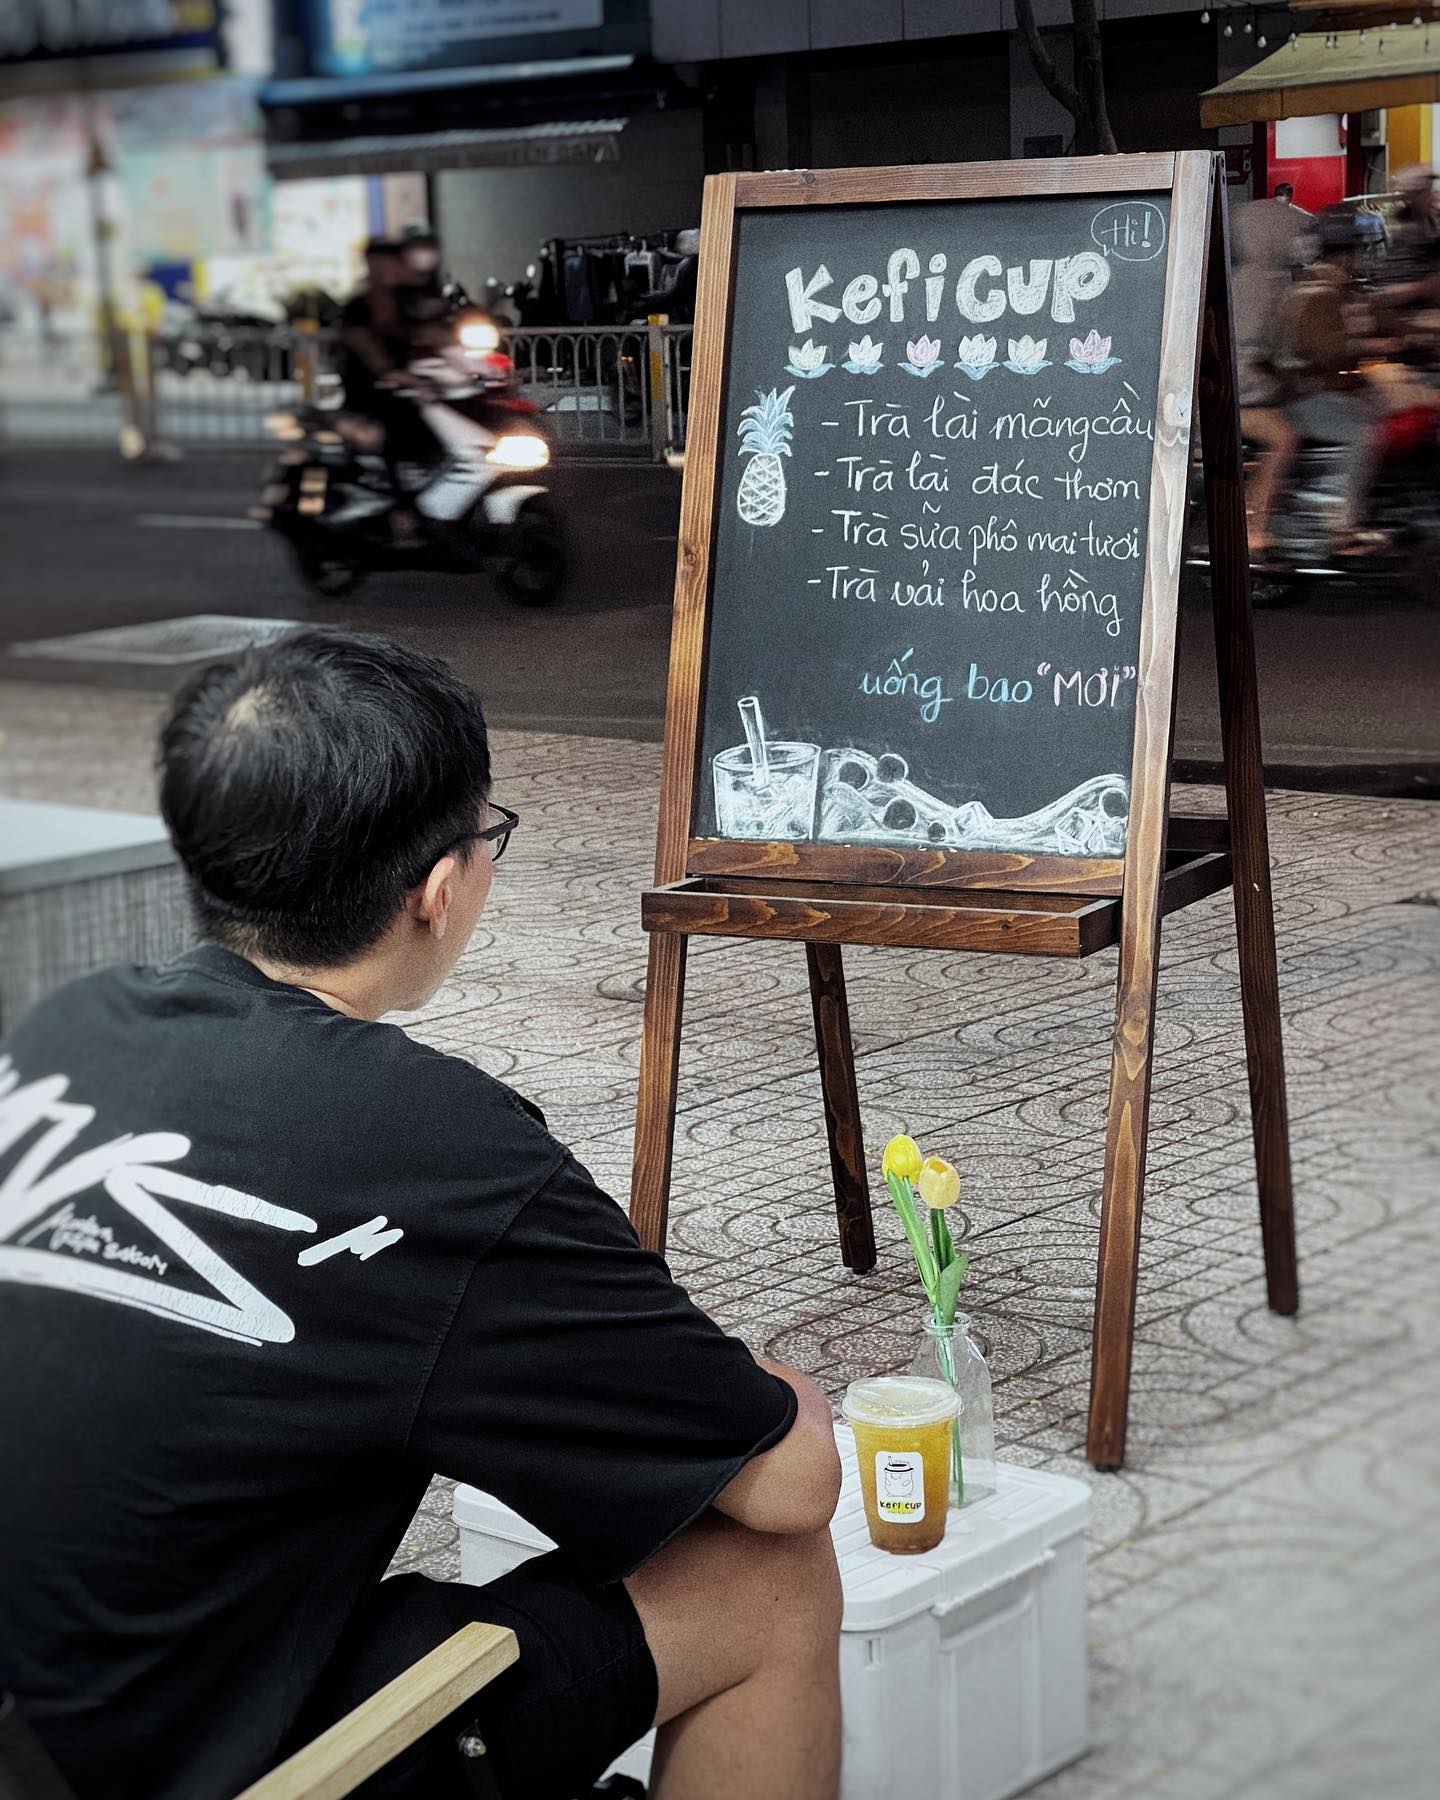 Hi!
Kefi Cup
- Trà lài mãng cầu
- Trà lài đác thơm
- Trà sữa phô mai tươi
- Trà vải hoa hồng
uống bao "MƠI"
Kefi Cup